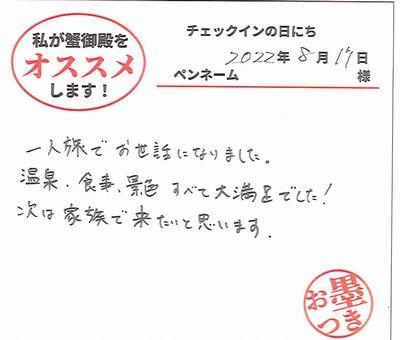 私が蟹御殿を
オススメ
します！
チェックインの日にち
2022年8月17日
ペンネーム 様
一人旅でお世話になりました。
温泉、食事、景色すべて大満足でした!
次は家族で来たいと思います。
お墨
つき